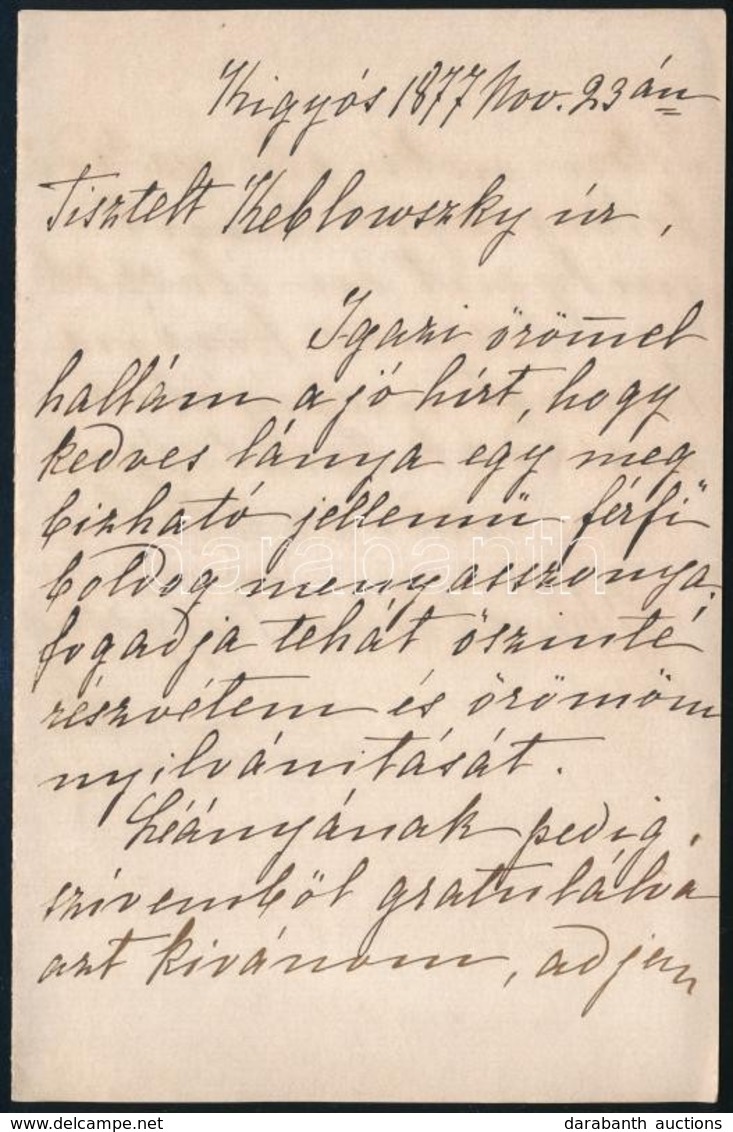 Kigyós 1877 Nov. 23án
Tisztelt Keblowszky úr,
Igazi örömel
hallám a jó hírt, hogy
kedves lánya egy meg
bizható jellemü férfi
boldog menyasszonya.
fogadja tehát öszinté
részvétem és örömöm
nyilvánitását.
Léányának pedig,
szívemböl gratulálva
azt kivánom, adjen
darabanth
darabanth auctions